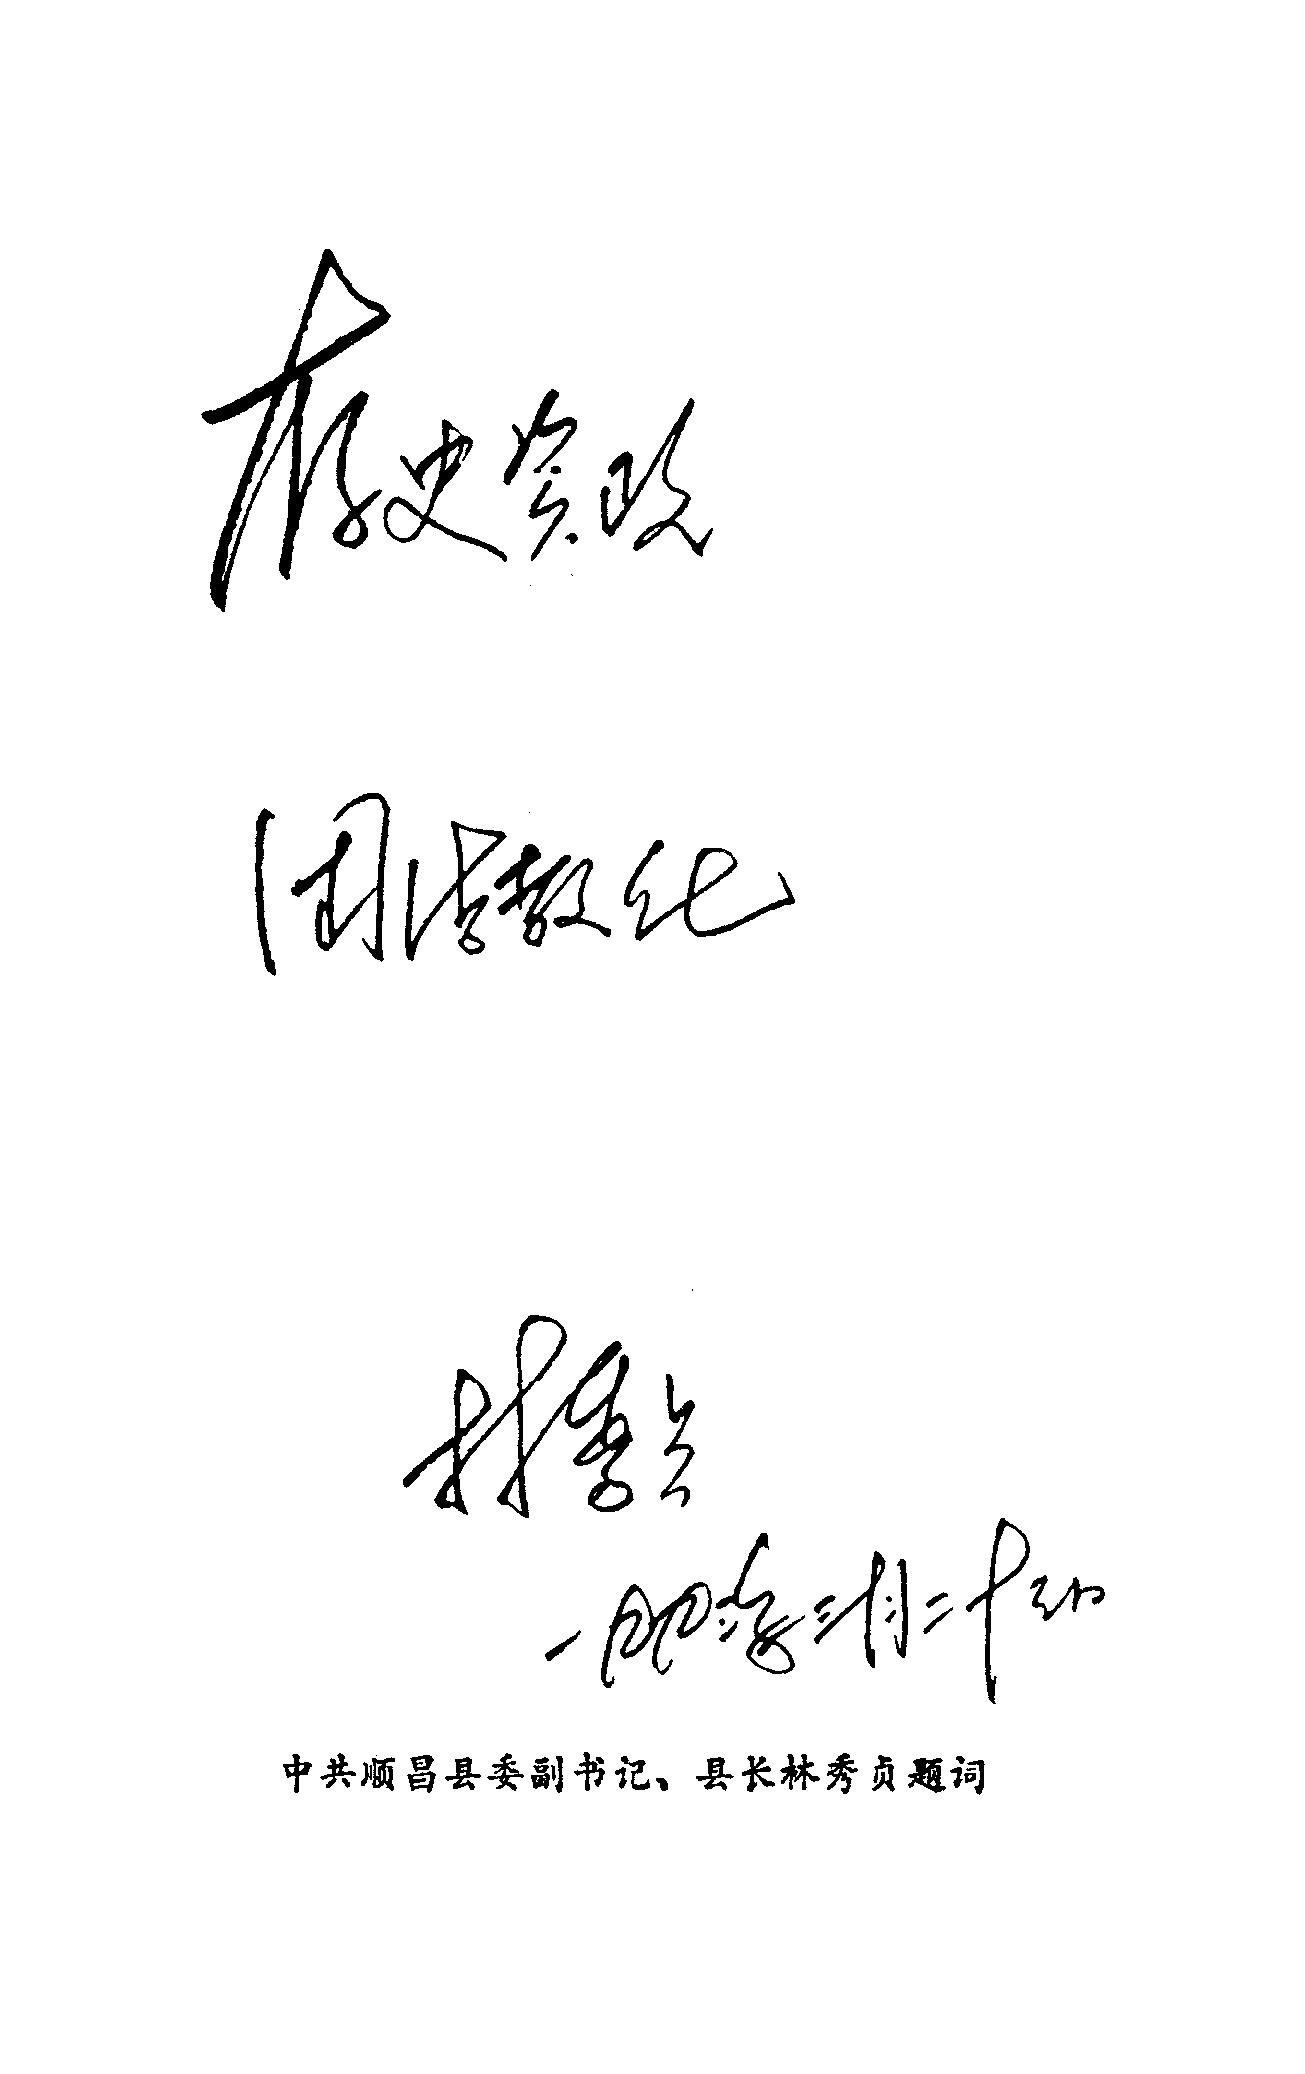 存史资政
团结教化
林秀贞
三月二十
中共顺昌县委副书记、县长林秀贞题词